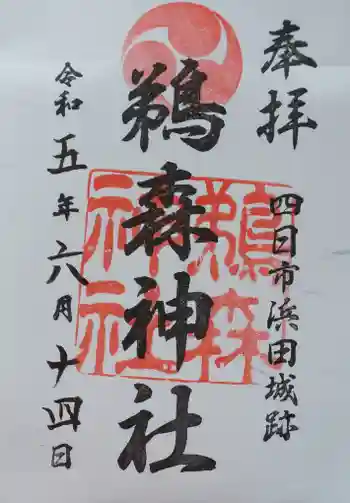 奉拝
四日市浜田城跡
鵜森神社
鵜森神社
令和五年六月十四日